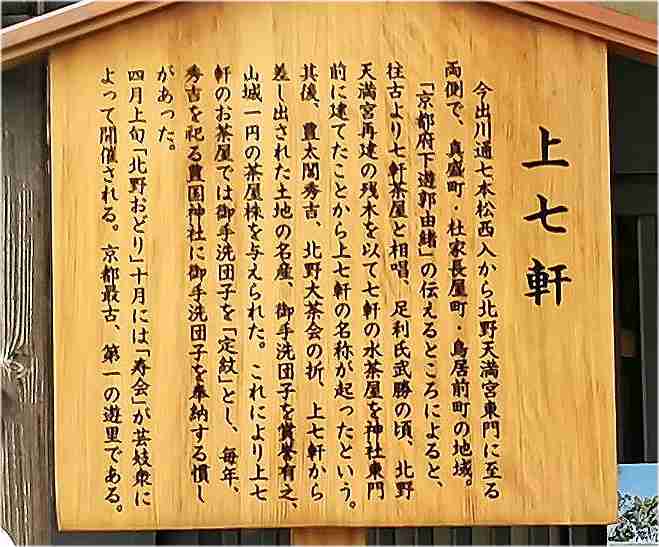 上七軒
今出川通七本松西入から北野天満宮東門に至る
両側で、真盛町・社家長屋町・鳥居前町の地域。
「京都府下遊郭由緒」の伝えるところによると、
往古より七軒茶屋と相唱、足利氏武勝の頃、北野
天満宮再建の残木を以て七軒の水茶屋を神社東門
前に建てたことから上七軒の名称が起ったという。
其後、豊太閤秀吉、北野大茶会の折、上七軒から
差し出された土地の名産、御手洗団子を賞誉有之、
山城一円の茶屋株を与えられた。これにより上七
軒のお茶屋では御手洗団子を「定紋」とし、毎年、
秀吉を祀る豊国神社に御手洗団子を奉納する慣し
があった。
四月上旬「北野おどり」十月には「寿会」が芸妓衆に
よって開催される。京都最古、第一の遊里である。